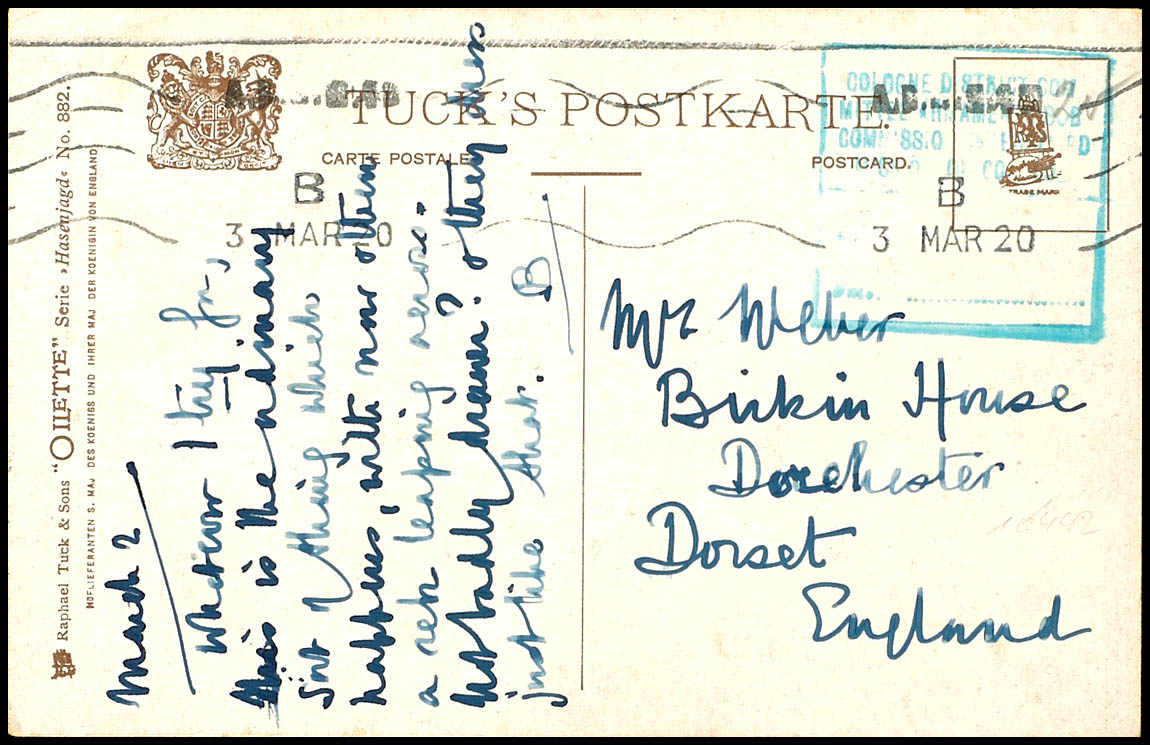 TUCK'S POSTKARTE.
CARTE POSTALE
POSTCARD.
TRADE MARK
COLOGNE DISTRICT COM
B
3 MAR 20
B
3 MAR 20
Raphael Tuck & Sons "OILETTE" Serie »Hasenjagd« No. 882.
HOFLIEFERANTEN S. MAJ. DES KOENIGS UND IHRER MAJ. DER KOENIGIN VON ENGLAND
March 2
Whatever I try for,
this is the ordinary
sort of thing which
happens, with now & then
a reh leaping across.
Not badly drawn? & they dress
just like that.
B
Mrs Weber
Birkin House
Dorchester
Dorset
England